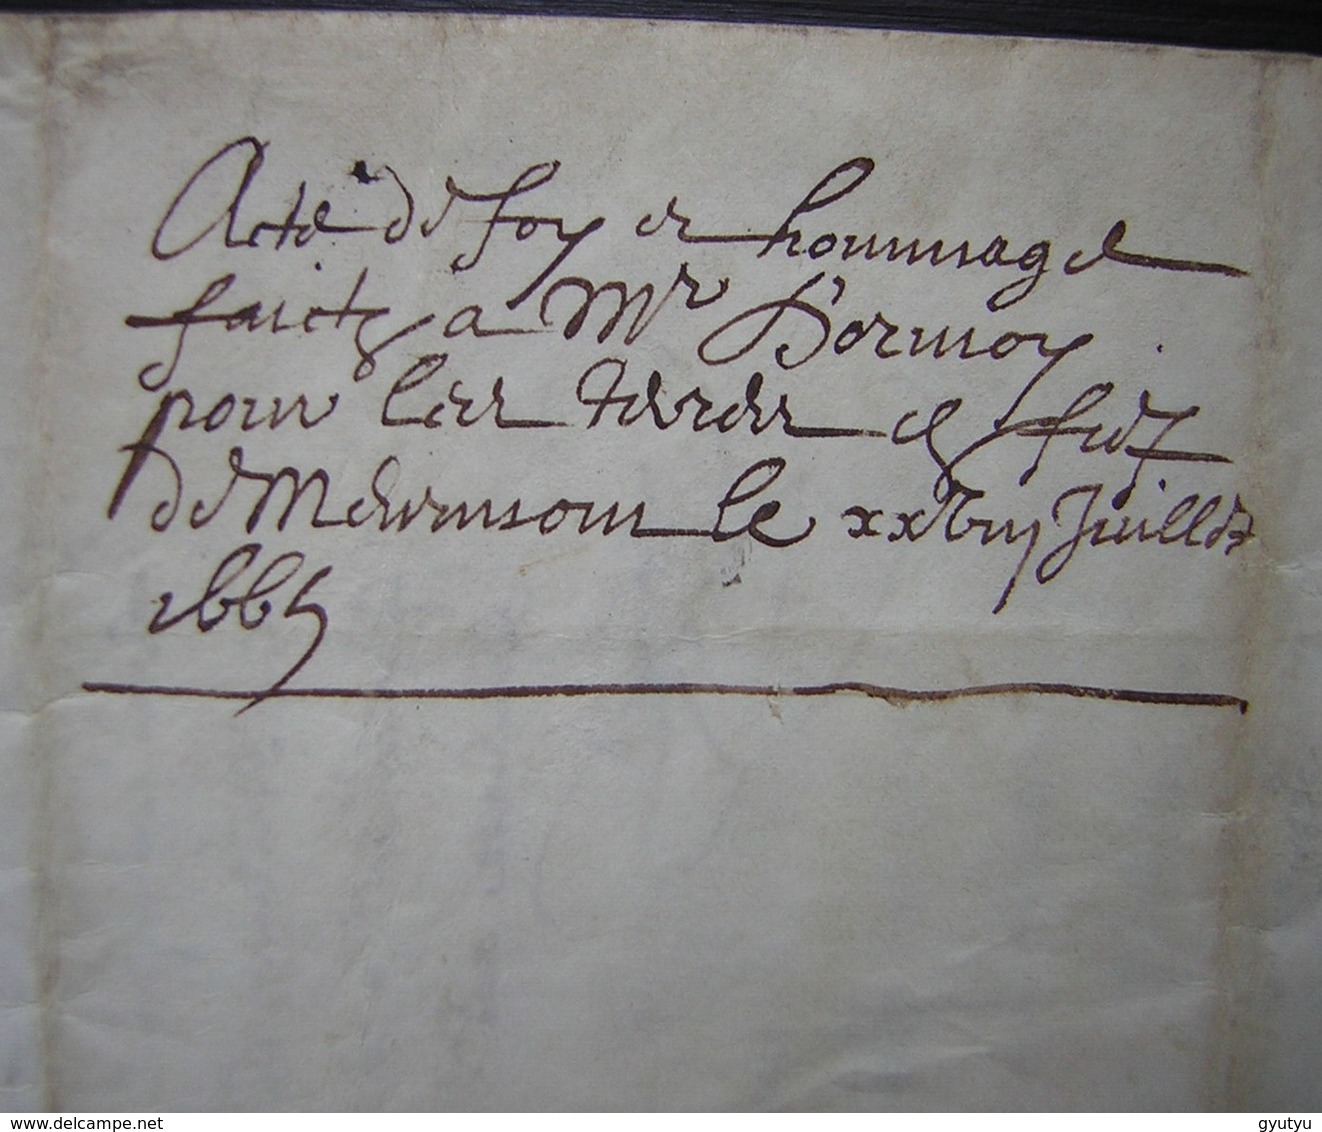 Acte de foy et hommage
faictz a Mr Dormoy
pour les terres et fief
de Meurnsom le xxviij Juillet
1665
www.delcampe.net
gyutyu